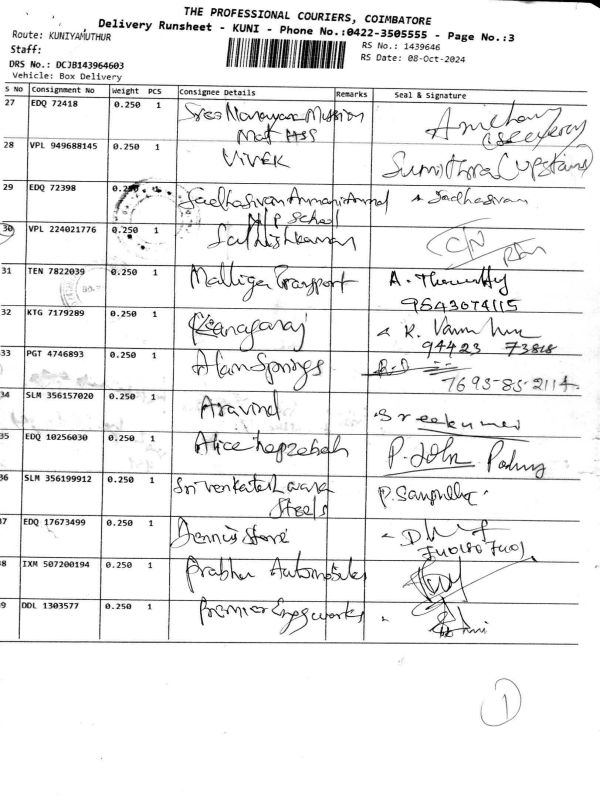 THE PROFESSIONAL COURIERS, COIMBATORE
Delivery Runsheet - KUNI - Phone No.:0422-3505555 - Page No.:3
Route: KUNIYAMUTHUR
RS No.: 1439646
Staff:
RS Date: 08-Oct-2024
DRS No.: DCJB143964603
Vehicle: Box Delivery
S No Consignment No Weight PCS Consignee Details Remarks Seal & Signature
27 EDQ 72418 0.250 1 Sree Narayana Mission
Mat HSS
28 VPL 949688145 0.250 1 Vivek Sumithra (Upstairs)
29 EDQ 72398 0.250 1 Sadhasivan Ammani Ammal Sadhasivan
School
30 VPL 224021776 0.250 1 Sathishkumar
31 TEN 7822039 0.250 1 Malliga Transport A.
9543074115
32 KTG 7179289 0.250 1 Kanagaraj K.
94423 73818
33 PGT 4746893 0.250 1 Alam Springs
7695-85-2114
34 SLM 356157020 0.250 1 Aravind Sreekumar
35 EDQ 10256030 0.250 1 Alice hepzebah P. John
36 SLM 356199912 0.250 1 Sri Venkateswara
Steels
37 EDQ 17673499 0.250 1 Dennis Store
38 IXM 507200194 0.250 1 Prabhu Automobiles
39 DDL 1303577 0.250 1 Premier Engg works
1